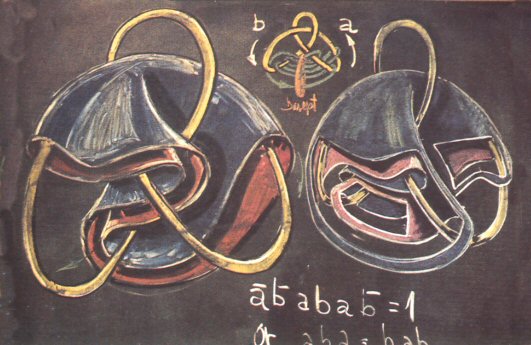 b a
āb̄abab̄=1
Or aba=bab